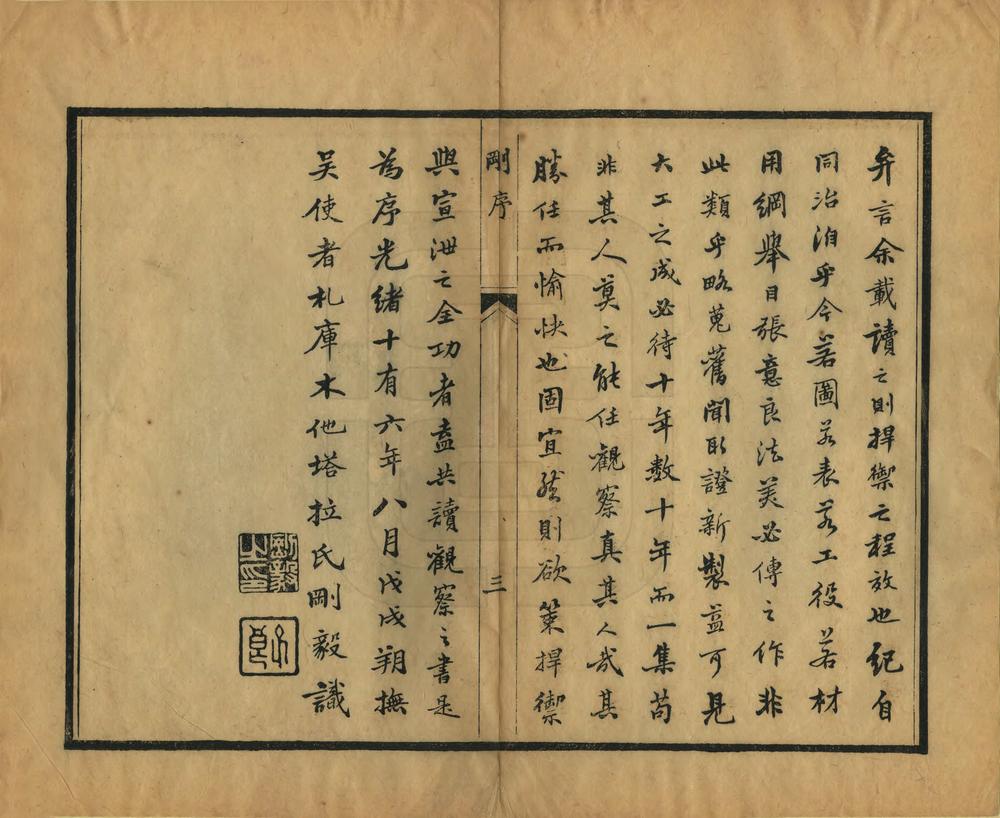 弁言余載讀之則捍禦之程效也紀自
同治洎乎今若圖若表若工役若材
用綱舉目張意良法美必傳之作非
此類乎略蒐舊聞取證新製益可見
大工之成必待十年數十年而一集苟
非其人莫之能任觀察真其人哉其
勝任而愉快也固宜然則欲策捍禦
剛序
三
與宣洩之全功者盍共讀觀察之書是
為序光緒十有六年八月戊戌朔撫
吴使者札庫木他塔拉氏剛毅識
剛毅
之印
子良